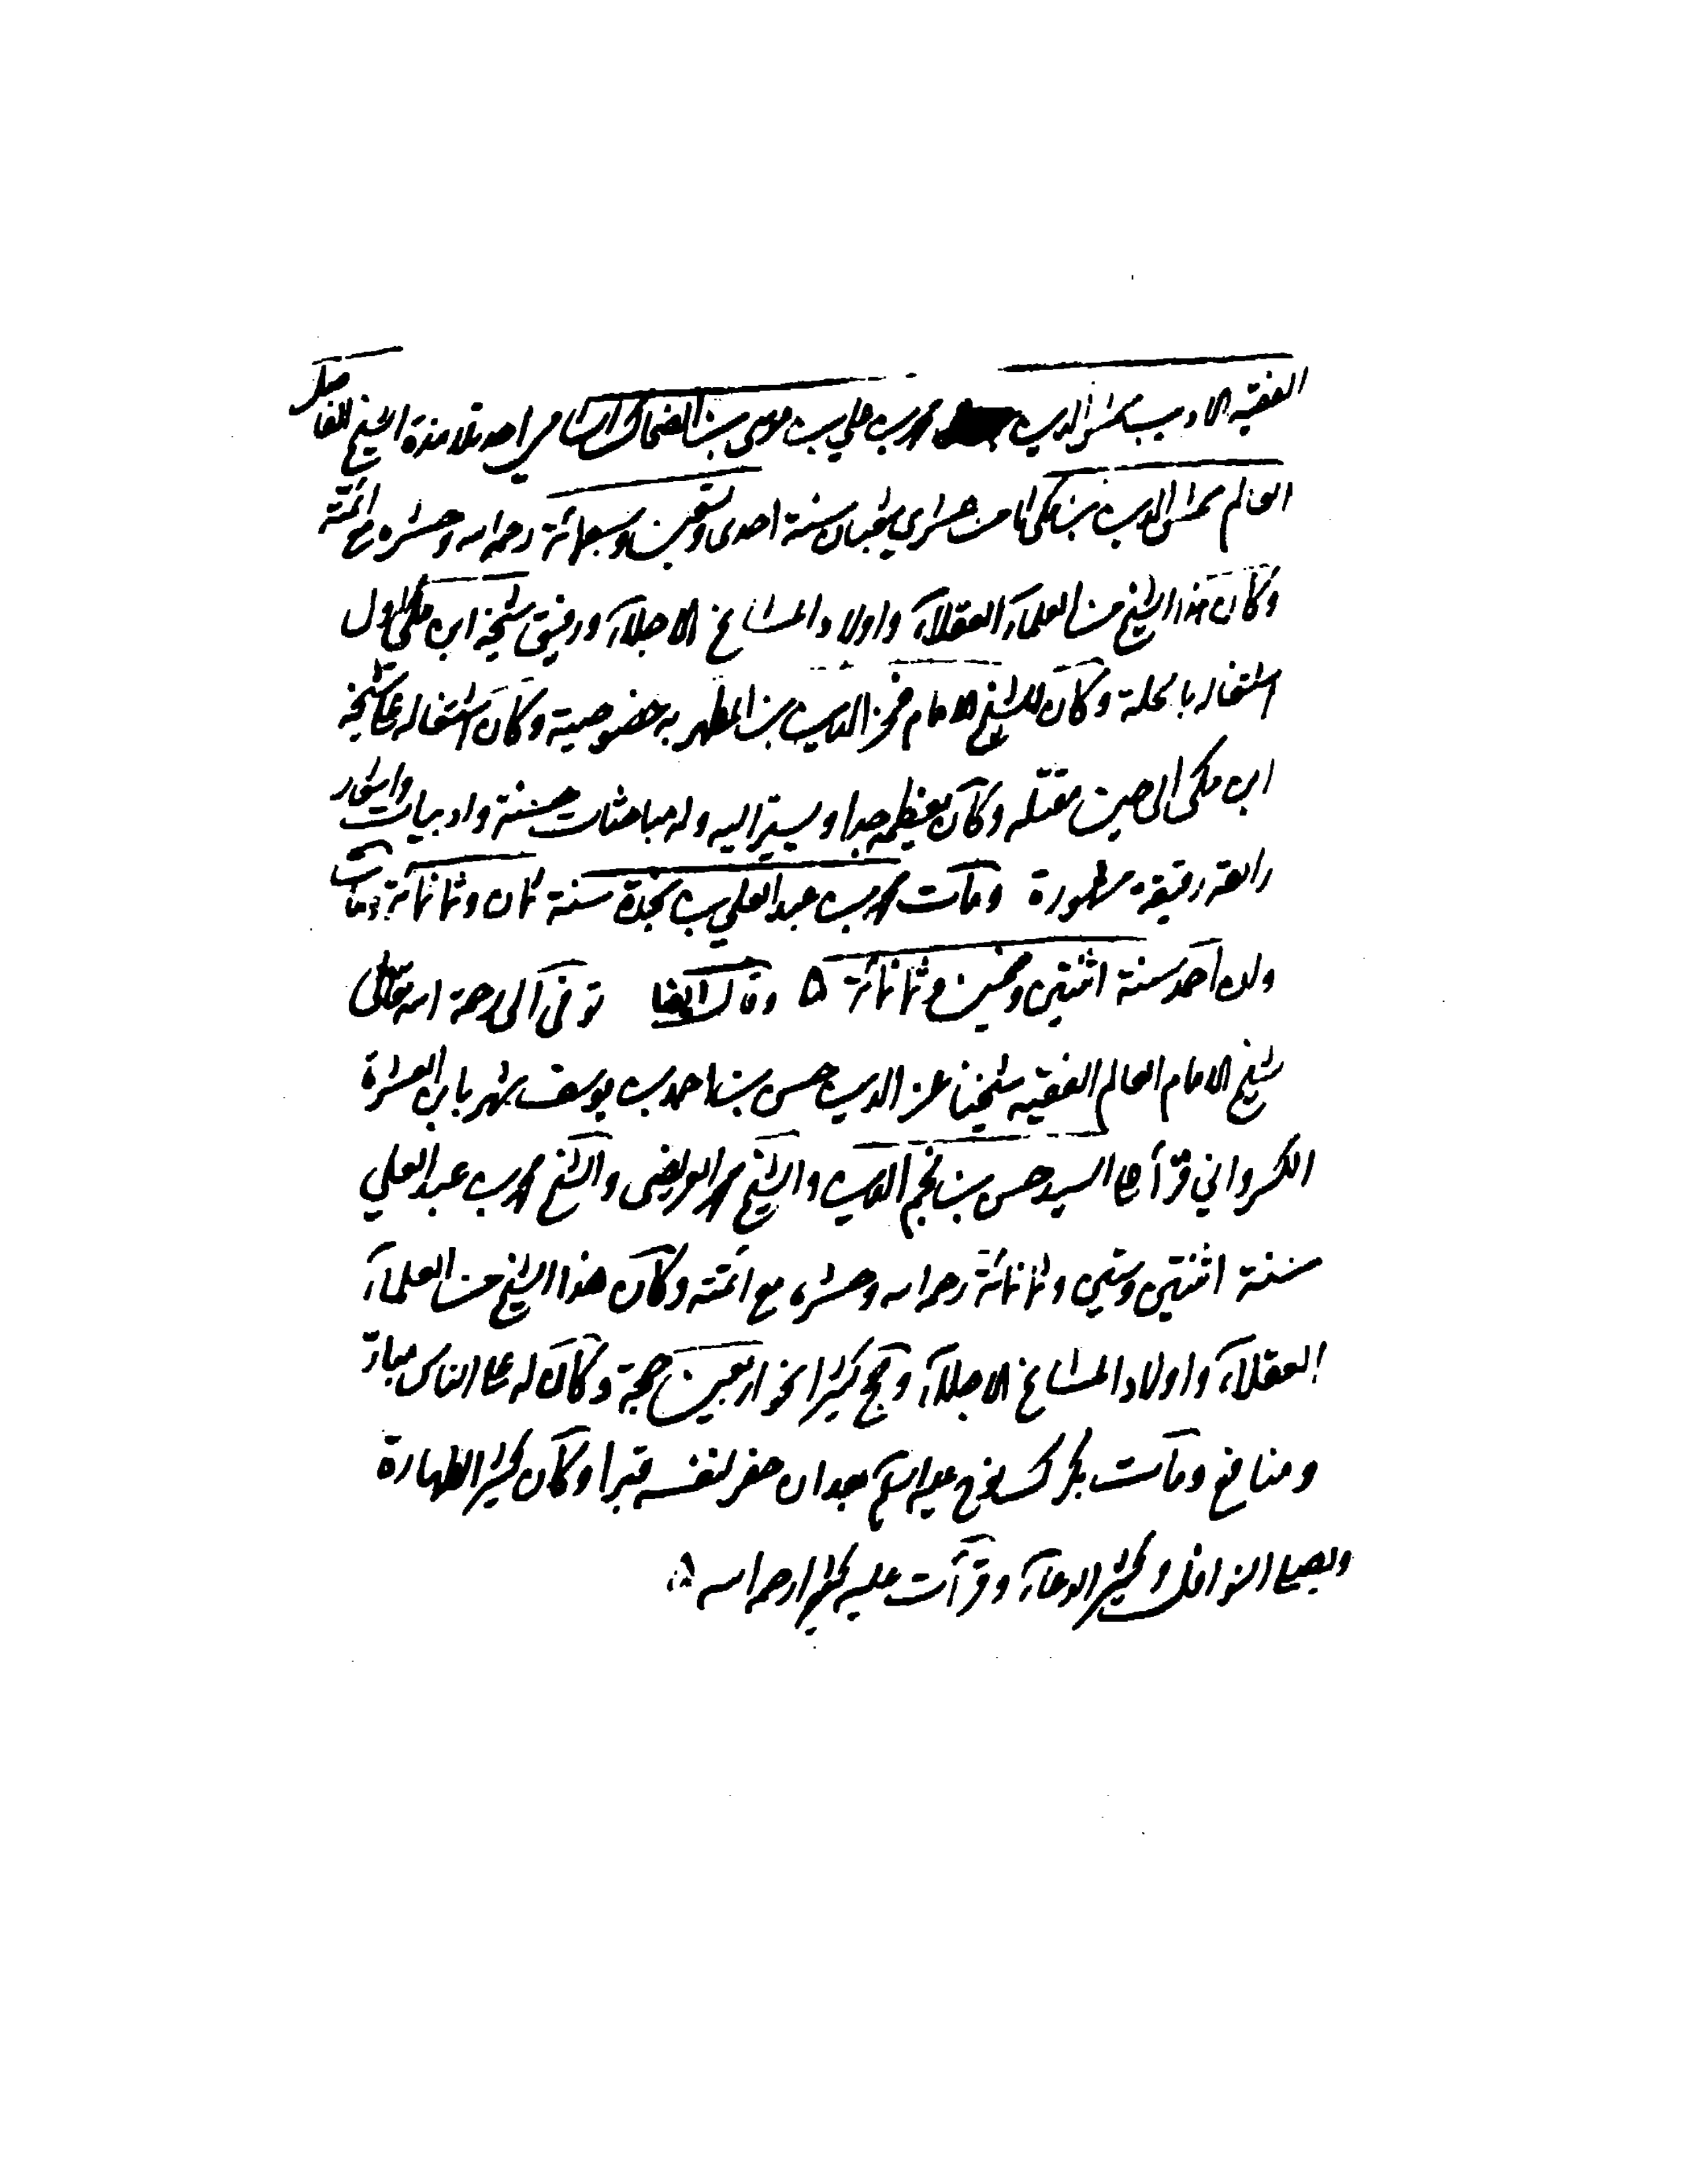 الفقيه الاديب شمس الدين محمد بن علي بن موسى بن الضحاك الشامي احد تلامذة الشيخ الفاضل
العالم شمس الدين بن مكي ثامن عشري شعبان سنة احدى وتسعين وسبعمائة رحمه الله وحشره مع ائمته
وكان هذا الشيخ من العلماء العقلاء واولاد المشايخ الاجلاء ورفيق شيخنا ابن مكي اول
اشتغاله بالحلة وكان للشيخ الامام فخر الدين بن المطهر به خصوصية وكان اشتغاله على شيخه
ابن مكي الى حين مقتله وكان يعظمه جدا ويشير اليه وله مباحثات حسنة وادبيات واشعار
رائقة رقيقة مشهورة ومات محمد بن عبد العلي بن نجدة سنة ثمان وثمانمائة ومات
ولده احمد سنة اثنتين وخمسين وثمانمائة ٥ وقال ايضا توفى الى رحمة الله تعالى
شيخ الامام العالم الفقيه شيخنا عز الدين حسن بن احمد بن يوسف شهر بابن العشرة
الكرواني قرأ على السيد حسن بن نجم الدين والشيخ محمد العريضى والشيخ محمد بن عبد العلي
سنة اثنتين وستين وثمانمائة رحمه الله وحشره مع ائمته وكان هذا الشيخ من العلماء
العقلاء واولاد المشايخ الاجلاء وحج كثيرا نحو اربعين حجة وكان له على الناس مبار
ومنافع ومات بكرك نوح عليه السلام بعد ان حفر لنفسه قبرا وكان كثير الطهارة
ويصلي النوافل وكثير الدعاء وقرأت عليه كثيرا رحمه الله ٥